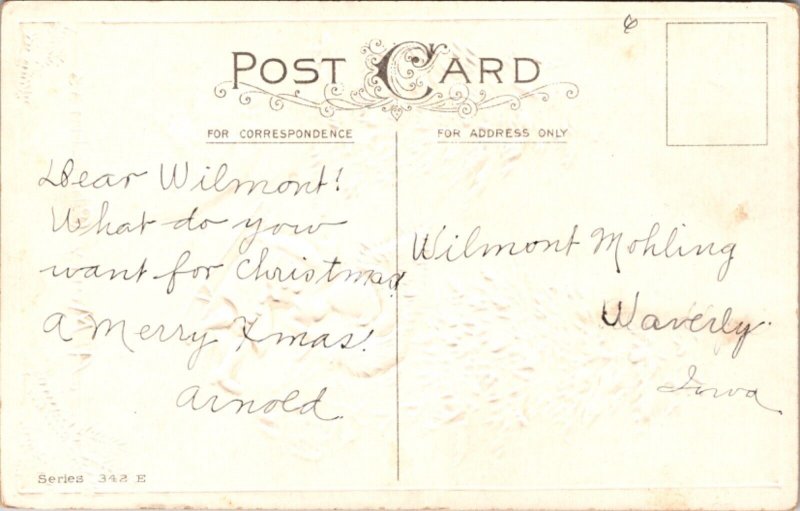 POST CARD
FOR CORRESPONDENCE
FOR ADDRESS ONLY
Dear Wilmont!
What do you
want for Christmas
A Merry Xmas!
Arnold
Wilmont Mohling
Waverly
Iowa
Series 342 E